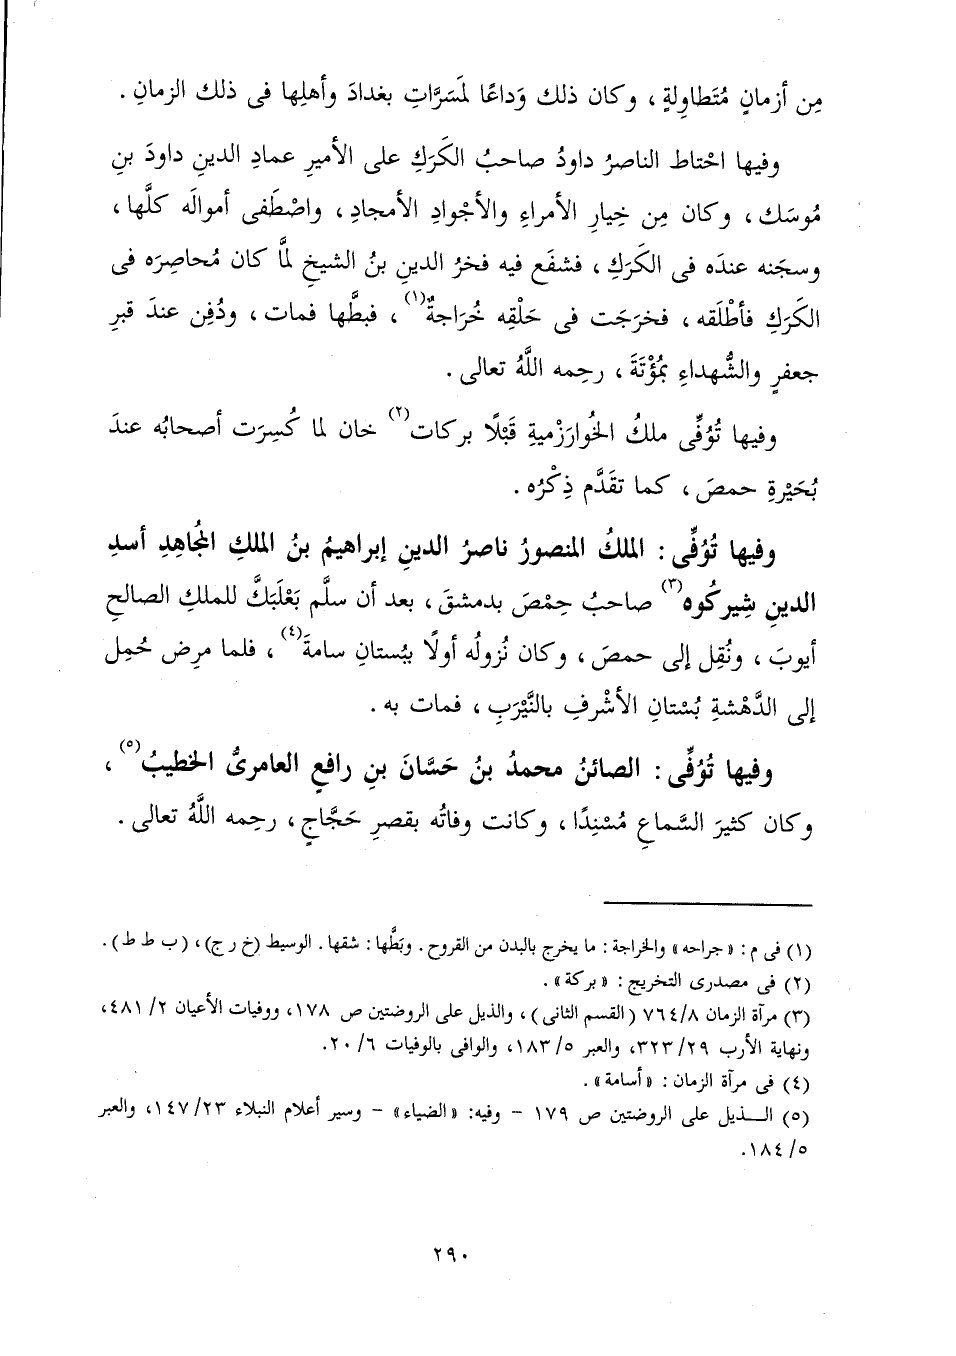 مِن أزمانٍ مُتَطاوِلةٍ ، وكان ذلك وَداعًا لمَسَرَّاتِ بغدادَ وأهلِها فى ذلك الزمانِ .
وفيها احْتاط الناصرُ داودُ صاحبُ الكَرَكِ على الأميرِ عمادِ الدينِ داودَ بنِ
مُوسَك ، وكان مِن خِيارِ الأمراءِ والأجْوادِ الأمجادِ ، واصْطَفى أموالَه كلَّها ،
وسجَنه عندَه فى الكَرَكِ ، فشفَع فيه فخرُ الدينِ بنُ الشيخِ لمَّا كان مُحاصِرَه فى
الكَرَكِ فأطْلَقه ، فخرَجَت فى حَلْقِه خُرَاجةٌ(١) ، فبطَّها فمات ، ودُفِن عندَ قبرِ
جعفرٍ والشُّهداءِ بمُؤْتَةَ ، رحِمه اللَّهُ تعالى .
وفيها تُوُفِّى ملكُ الخُوارَزْميةِ قَبْلًا بركات(٢) خان لما كُسِرَت أصحابُه عندَ
بُحَيْرةِ حمصَ ، كما تقَدَّم ذِكْرُه .
وفيها تُوُفِّى : الملكُ المنصورُ ناصرُ الدينِ إبراهيمُ بنُ الملكِ المُجاهِدِ أسدِ
الدينِ شِيركُوه(٣) صاحبُ حِمْصَ بدمشقَ ، بعد أن سلَّم بَعْلَبَكَّ للملكِ الصالحِ
أيوبَ ، ونُقِل إلى حمصَ ، وكان نُزولُه أولًا ببُستانِ سامةَ(٤) ، فلما مرِض حُمِل
إلى الدَّهْشةِ بُسْتانِ الأشْرفِ بالنَّيْرَبِ ، فمات به .
وفيها تُوُفِّى : الصائنُ محمدُ بنُ حَسَّانَ بنِ رافعٍ العامرىُّ الخطيبُ(٥) ،
وكان كثيرَ السَّماعِ مُسْنِدًا ، وكانت وفاتُه بقصرِ حَجَّاجٍ ، رحِمه اللَّهُ تعالى .
(١) فى م : «جراحه» والخراجة : ما يخرج بالبدن من القروح . وبَطَّها : شقها . الوسيط (خ ر ج) ، (ب ط ط) .
(٢) فى مصدرى التخريج : «بركة» .
(٣) مرآة الزمان ٧٦٤/٨ (القسم الثانى) ، والذيل على الروضتين ص ١٧٨، ووفيات الأعيان ٢/ ٤٨١،
ونهاية الأرب ٢٩/ ٣٢٣، والعبر ٥/ ١٨٣، والوافى بالوفيات ٦/ ٢٠.
(٤) فى مرآة الزمان : «أسامة» .
(٥) الــذيل على الروضتين ص ١٧٩ - وفيه: «الضياء» - وسير أعلام النبلاء ٢٣/ ١٤٧، والعبر
٥/ ١٨٤.
٢٩٠